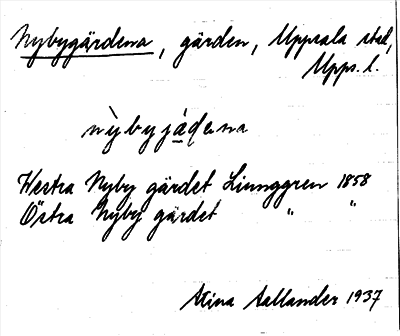 Nybygärdena, gärden, Uppsala stad,
Upps. l.
nỳbyjáḍeṇa
Westra Nyby gärdet Liunggren 1858
Östra Nyby gärdet " "
Stina Sallander 1937